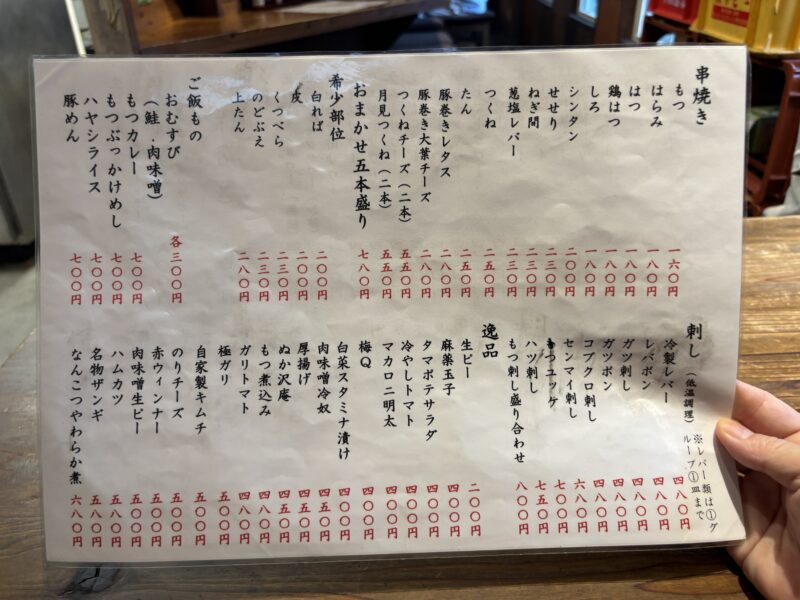 串焼き
もつ 一六〇円
はらみ 一八〇円
はつ 一八〇円
鶏はつ 一八〇円
しろ 一八〇円
シンタン 二〇〇円
せせり 二三〇円
ねぎ間 二三〇円
葱塩レバー 二三〇円
つくね 二五〇円
たん 二五〇円
豚巻きレタス 二八〇円
豚巻き大葉チーズ 二八〇円
つくねチーズ（二本） 五五〇円
月見つくね（二本） 五五〇円
おまかせ五本盛り 七八〇円
希少部位
白れば 二〇〇円
皮 二〇〇円
くつべら 二三〇円
のどぶえ 二三〇円
上たん 二八〇円
ご飯もの
おむすび 各三〇〇円
（鮭・肉味噌）
もつカレー 七〇〇円
もつぶっかけめし 七〇〇円
ハヤシライス 七〇〇円
豚めん 七〇〇円
刺し（低温調理）
※レバー類は①グ
ループ①皿まで
冷製レバー 四八〇円
レバポン 四八〇円
ガツ刺し 四八〇円
ガツポン 四八〇円
コブクロ刺し 四八〇円
センマイ刺し 六八〇円
もつユッケ 七〇〇円
ハツ刺し 七五〇円
もつ刺し盛り合わせ 八〇〇円
逸品
生ピー 二〇〇円
麻薬玉子 四〇〇円
タマポテサラダ 四〇〇円
冷やしトマト 四〇〇円
マカロニ明太 四〇〇円
梅Q 四〇〇円
白菜スタミナ漬け 四〇〇円
肉味噌冷奴 四五〇円
厚揚げ
ぬか沢庵
もつ煮込み
ガリトマト 四八〇円
極ガリ
自家製キムチ 五〇〇円
のりチーズ 五〇〇円
赤ウィンナー 五〇〇円
肉味噌生ピー
ハムカツ 五八〇円
名物ザンギ 五八〇円
なんこつやわらか煮 六八〇円